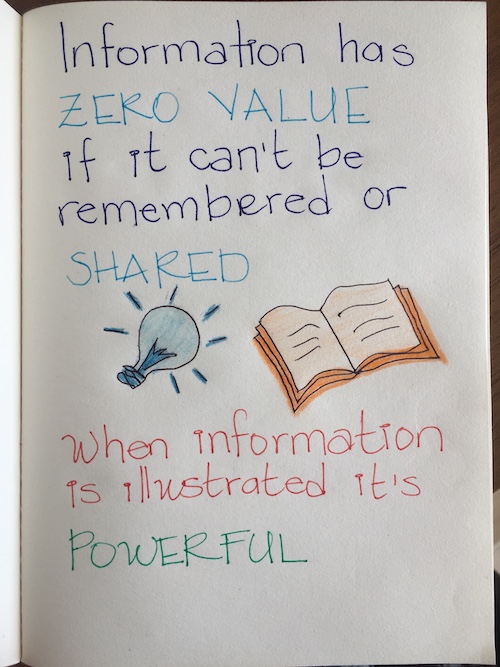 Information has
ZERO VALUE
if it can't be
remembered or
SHARED
When information
is illustrated it's
POWERFUL